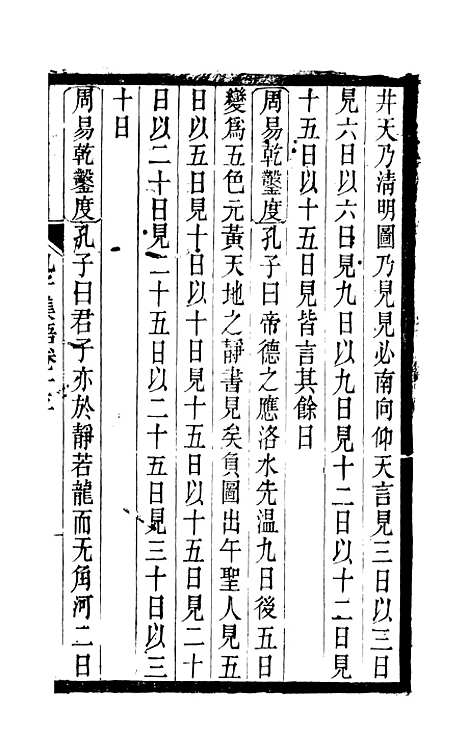 井天乃清明圖乃見見必南向仰天言見三日以三日
見六日以六日見九日以九日見十二日以十二日見
十五日以十五日見皆言其餘日
周易乾鑿度孔子曰帝德之應洛水先温九日後五日
變爲五色元黃天地之靜書見矣負圖出午聖人見五
日以五日見十日以十日見十五日以十五日見二十
日以二十日見二十五日以二十五日見三十日以三
十日
周易乾鑿度孔子曰君子亦於靜若龍而无角河二日
孔子集語卷十三